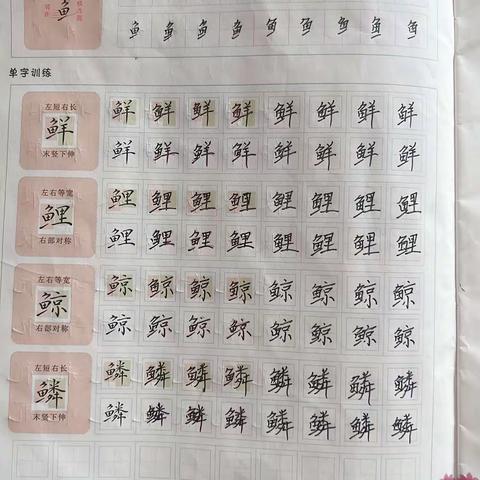 鱼
鱼 鱼 鱼 鱼 鱼 鱼 鱼 鱼 鱼
单字训练
左短右长
鲜
末竖下伸
鲜 鲜 鲜 鲜 鲜 鲜 鲜 鲜
鲜 鲜 鲜 鲜 鲜 鲜 鲜 鲜
左右等宽
鲤
右部对称
鲤 鲤 鲤 鲤 鲤 鲤 鲤 鲤
鲤 鲤 鲤 鲤 鲤 鲤 鲤 鲤
左右等宽
鲸
右部对称
鲸 鲸 鲸 鲸 鲸 鲸 鲸 鲸
鲸 鲸 鲸 鲸 鲸 鲸 鲸 鲸
左短右长
鳞
末竖下伸
鳞 鳞 鳞 鳞 鳞 鳞 鳞 鳞
鳞 鳞 鳞 鳞 鳞 鳞 鳞 鳞